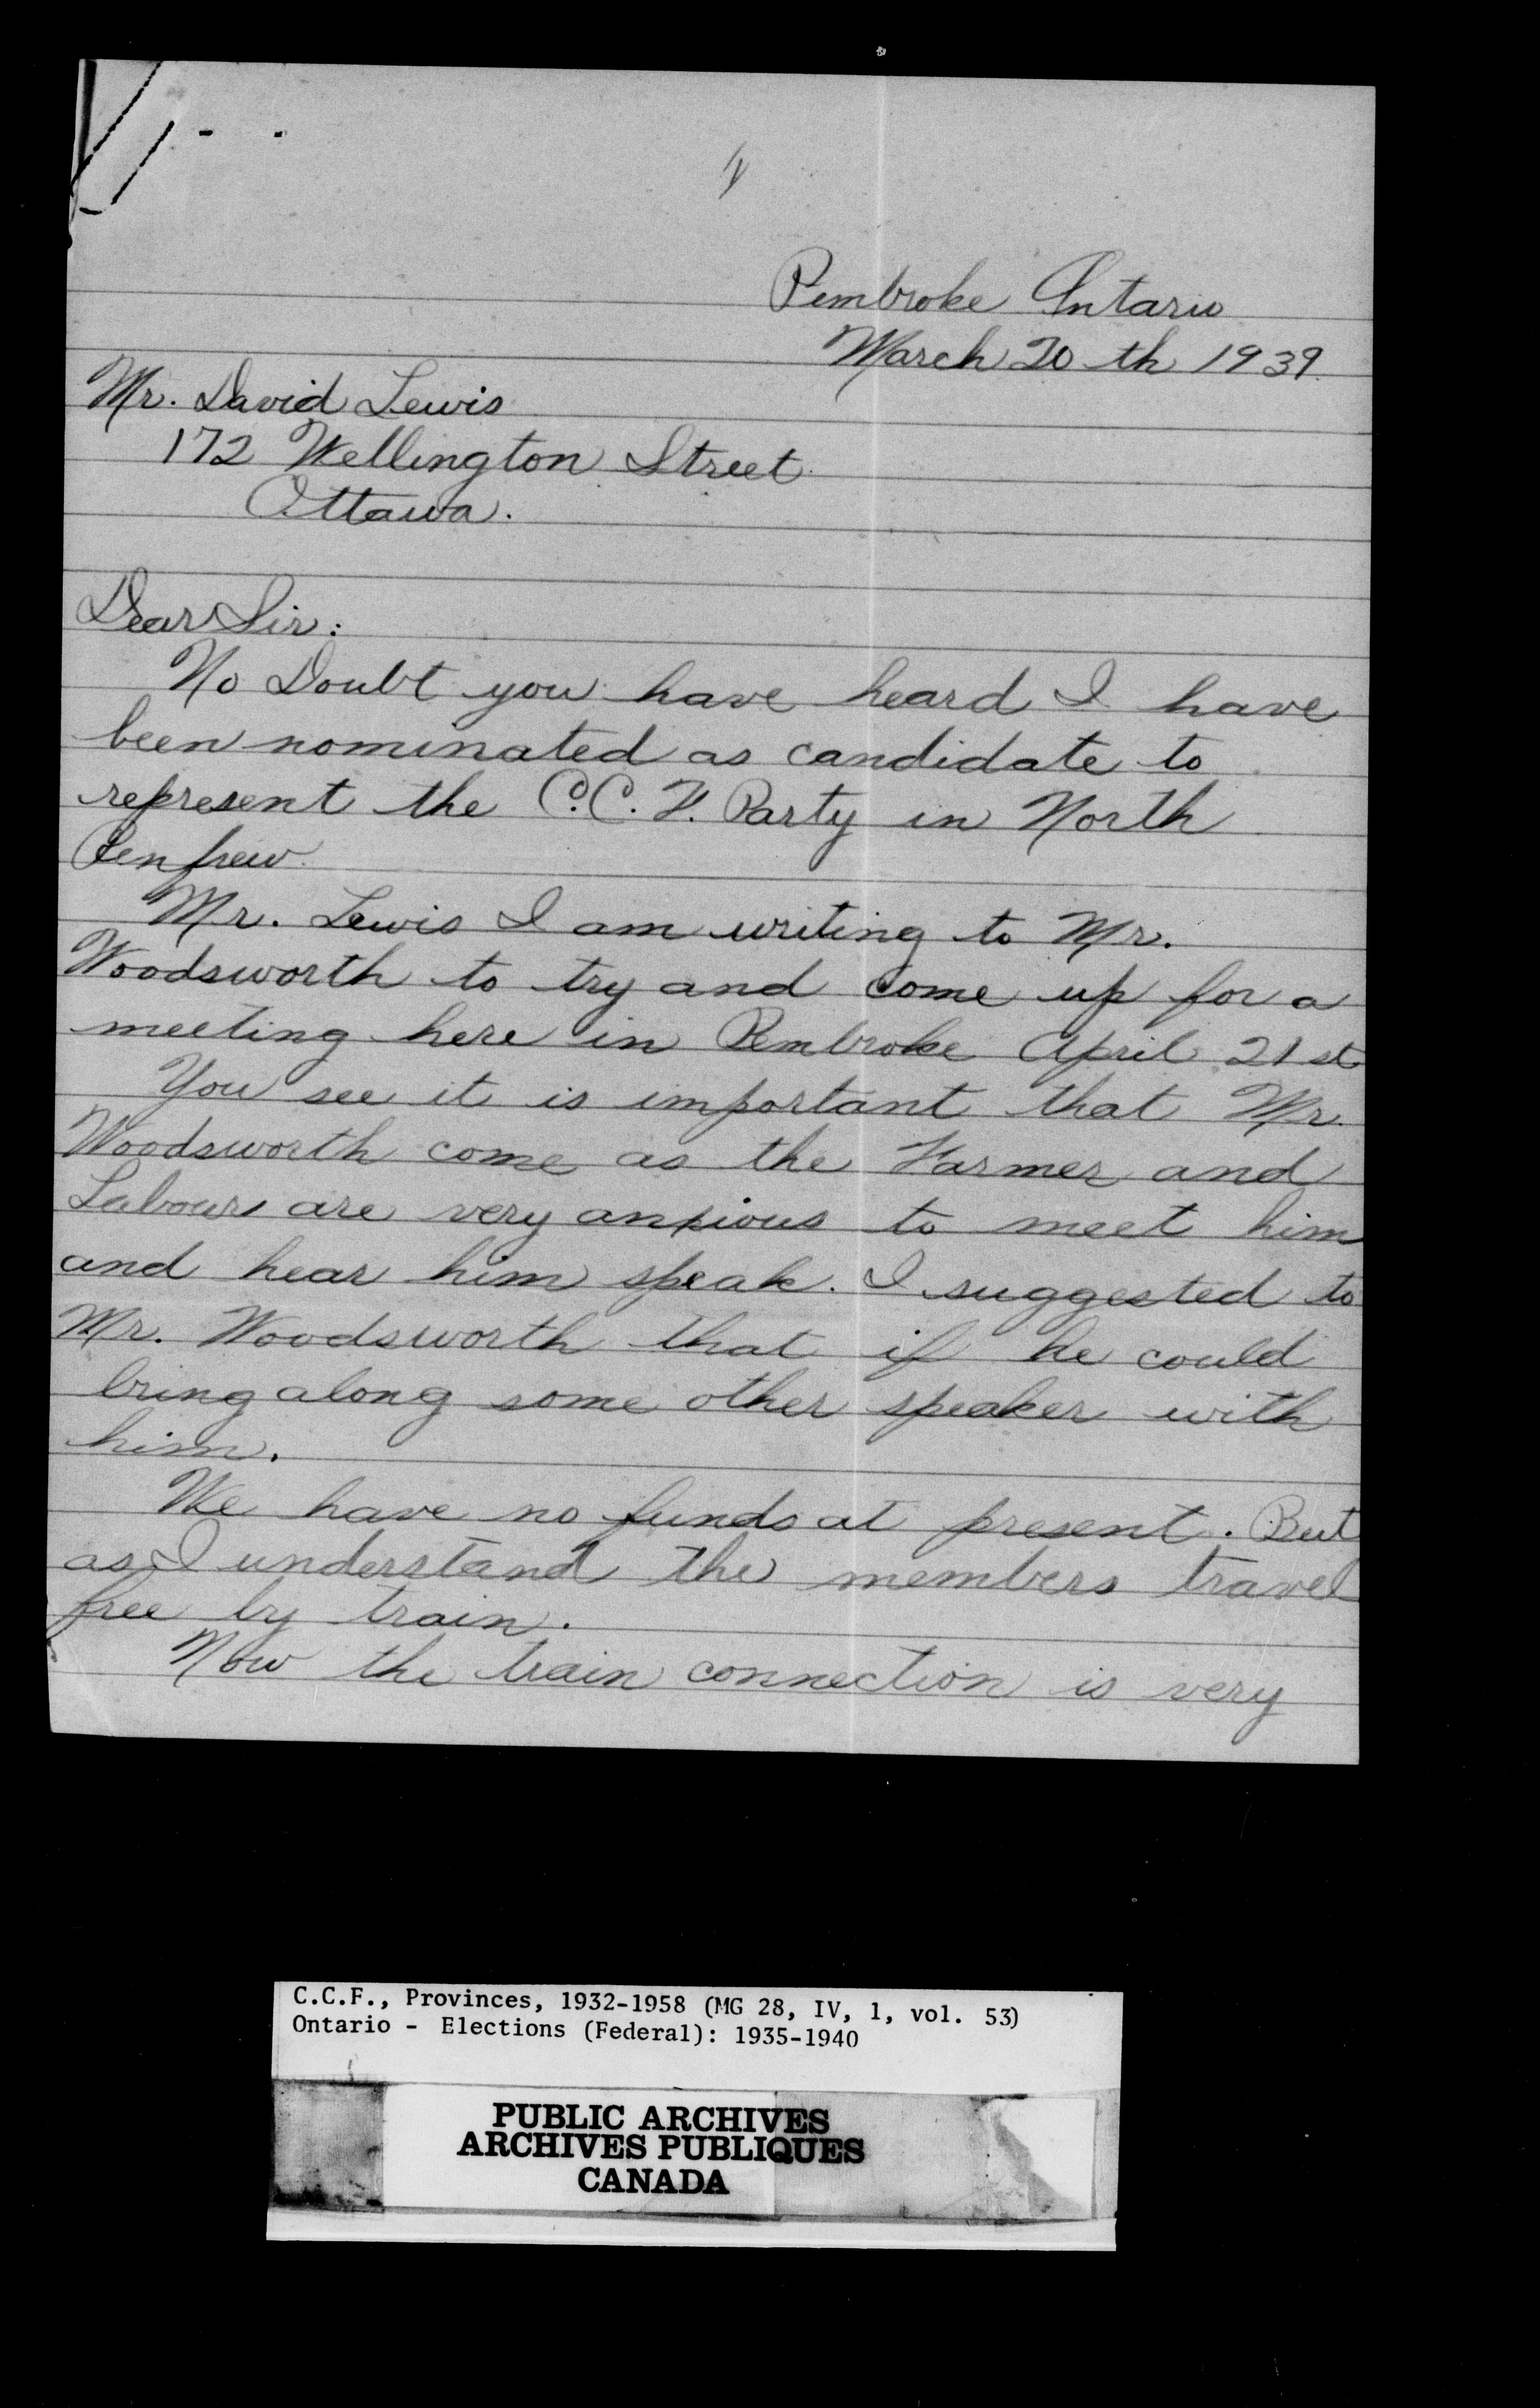 Pembroke Ontario
March 20th 1939.
Mr. David Lewis
172 Wellington Street
Ottawa.
Dear Sir:
No Doubt you have heard I have
been nominated as candidate to
represent the C.C.F. Party in North
Renfrew.
Mr. Lewis I am writing to Mr.
Woodsworth to try and come up for a
meeting here in Pembroke April 21st
You see it is important that Mr.
Woodsworth come as the Farmer and
Labour are very anxious to meet him
and hear him speak. I suggested to
Mr. Woodsworth that if he could
bring along some other speaker with
him.
We have no funds at present. But
as I understand the members travel
free by train.
Now the train connection is very
C.C.F., Provinces, 1932-1958 (MG 28, IV, 1, vol. 53)
Ontario - Elections (Federal): 1935-1940
PUBLIC ARCHIVES
ARCHIVES PUBLIQUES
CANADA